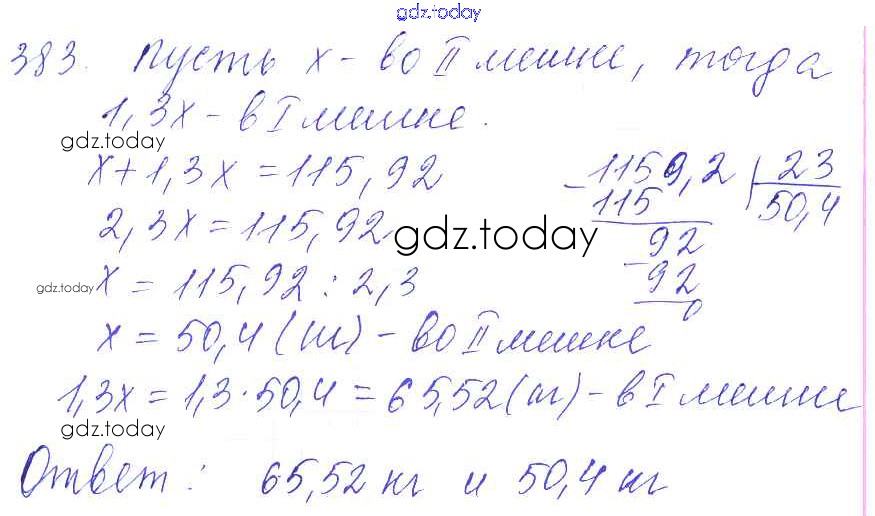 gdz.today
383. Пусть x - во II мешке, тогда
1,3x - в I мешке.
gdz.today
x + 1,3x = 115,92
2,3x = 115,92
gdz.today
gdz.today
x = 115,92 : 2,3
x = 50,4 (кг) - во II мешке
1,3x = 1,3 · 50,4 = 65,52 (кг) - в I мешке
gdz.today
Ответ: 65,52 кг и 50,4 кг
-1159,2 | 23
115 50,4
92
-92
0